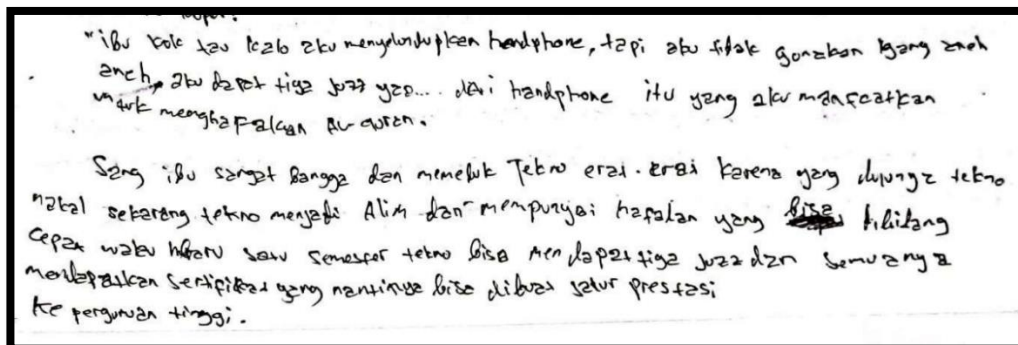 "ibu kok tau kalo aku menyelundupkan handphone, tapi aku tidak gunakan yang aneh
aneh, aku dapat tiga juzz yao... dari handphone itu yang aku manfcatkan
untuk menghafalkan Al-quran.
Sang ibu sangat bangga dan memeluk Tekno erat-erat karena yang dulunya tekno
nakal sekarang tekno menjadi Alim dan mempunyai hafalan yang bisa dibilang
cepat waktu baru satu semester tekno bisa mendapat tiga juzz dan semuanya
mendapatkan sertifikat yang nantinya bisa dibuat jalur prestasi
ke perguruan tinggi.